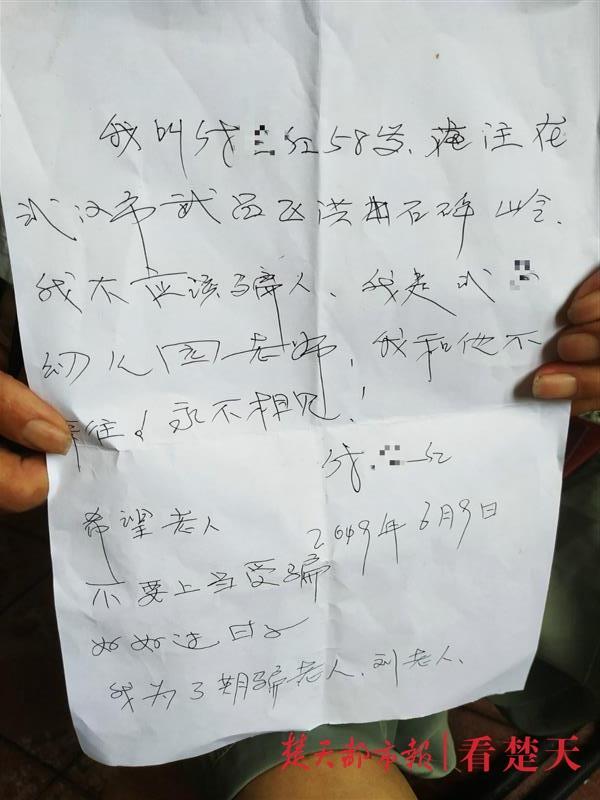 我叫钱 红58岁、住在
武汉市武昌区洪山石碑岭、
我不应该骗人、我是武
幼儿园老师,我和他不
来往!永不相见!
钱 红
2019年6月9日
希望老人
不要上当受骗
好好过日子
我为了期骗老人、刘老人、
楚天都市報 看楚天